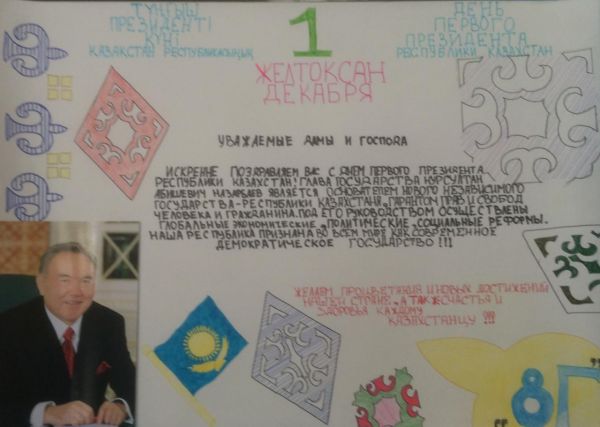 ТҰҢҒЫШ
ПРЕЗИДЕНТІ
КҮНІ
ҚАЗАҚСТАН РЕСПУБЛИКАСЫНЫҢ
1
ЖЕЛТОҚСАН
ДЕКАБРЯ
ДЕНЬ
ПЕРВОГО
ПРЕЗИДЕНТА
РЕСПУБЛИКИ КАЗАХСТАН
УВАЖАЕМЫЕ ДАМЫ И ГОСПОДА
ИСКРЕННЕ ПОЗДРАВЛЯЕМ ВАС С ДНЕМ ПЕРВОГО ПРЕЗИДЕНТА
РЕСПУБЛИКИ КАЗАХСТАН! ГЛАВА ГОСУДАРСТВА НУРСУЛТАН
АБИШЕВИЧ НАЗАРБАЕВ ЯВЛЯЕТСЯ ОСНОВАТЕЛЕМ НОВОГО НЕЗАВИСИМОГО
ГОСУДАРСТВА-РЕСПУБЛИКИ КАЗАХСТАНА, ГАРАНТОМ ПРАВ И СВОБОД
ЧЕЛОВЕКА И ГРАЖДАНИНА. ПОД ЕГО РУКОВОДСТВОМ ОСУЩЕСТВЛЕНЫ
ГЛОБАЛЬНЫЕ ЭКОНОМИЧЕСКИЕ, ПОЛИТИЧЕСКИЕ, СОЦИАЛЬНЫЕ РЕФОРМЫ.
НАША РЕСПУБЛИКА ПРИЗНАНА ВО ВСЕМ МИРЕ КАК СОВРЕМЕННОЕ
ДЕМОКРАТИЧЕСКОЕ ГОСУДАРСТВО !!!
ЖЕЛАЕМ ПРОЦВЕТАНИЯ И НОВЫХ ДОСТИЖЕНИЙ
НАШЕЙ СТРАНЕ, А ТАКЖЕ СЧАСТЬЯ И
ЗДОРОВЬЯ КАЖДОМУ
КАЗАХСТАНЦУ !!!
"8Г"